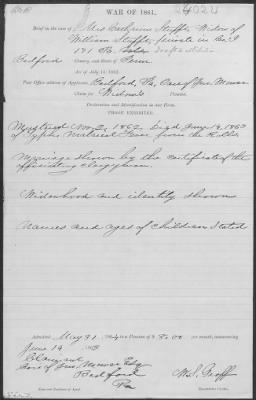 WAR OF 1861.
Brief in the case of Mrs Catharine Stufft, Widow of
William Stufft, Private in Co. I
171 Pa.
Bedford County, and State of Penn
Act of July 14, 1862.
Post Office address of Applicant Bedford, Pa, Care of Jno. Mower
Claim for Widow's Pension.
Declaration and Identification in due Form.
PROOF EXHIBITED.
Mustered Nov. 2, 1862. Died June 14, 1863
of Typhoid from the Rolls
Marriage shown by the certificate of the
officiating clergyman.
Widowhood and identity shown
names and ages of children stated
Admitted May 31, 1864 to a Pension of $8.00 per month, commencing
June 14 1863
Claimant
Care of Jno. Mower Esq
Bedford
Pa
Examining Clerk.
Name and Residence of Agent.